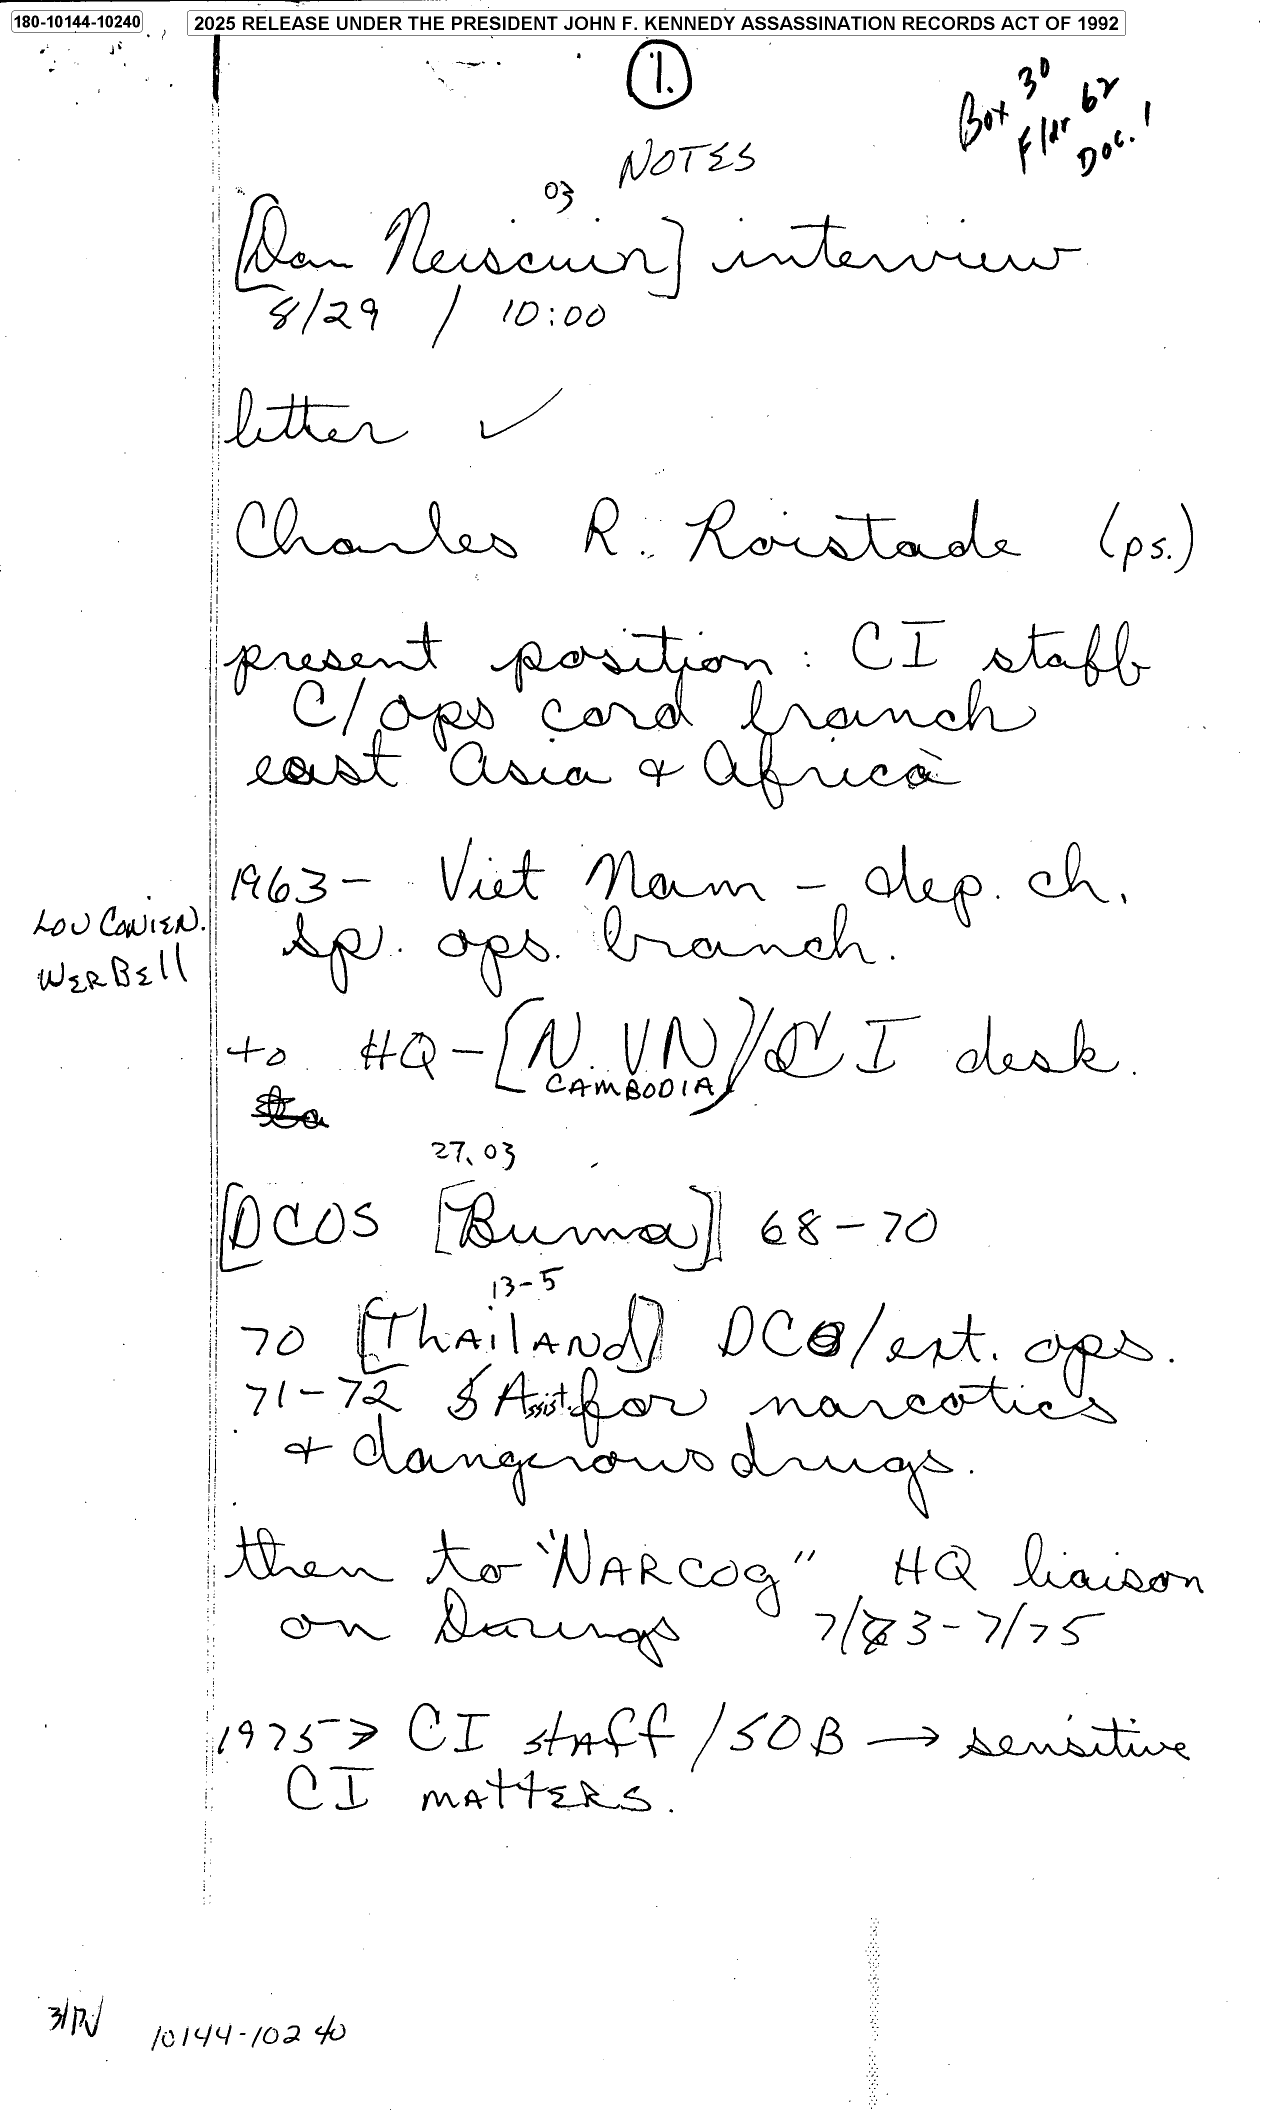 180-10144-10240
2025 RELEASE UNDER THE PRESIDENT JOHN F. KENNEDY ASSASSINATION RECORDS ACT OF 1992
1.
Box 30
Fldr 62
Doc. 1
NOTES
03
[Dan Neiscuir] interview
8/29 / 10:00
letter ✓
Charles R. Roistade (ps.)
present position: CI staff
C/ops cord branch
east Asia & Africa
1963- Viet Nam - dep. ch.
sp. ops. branch.
LOU CONIEN.
WERBELL
to HQ - [N. VN]/CI desk.
CAMBODIA
27, 03
[DCOS [Burma]] 68-70
13-5
70 [Thailand] DCO/ext. ops.
71-72 SAssist. for narcotics
& dangerous drugs.
then to "NARCOG" HQ liaison
on 7/73-7/75
1975→ CI staff/SOB → sensitive
CI MATTERS.
10144-10240